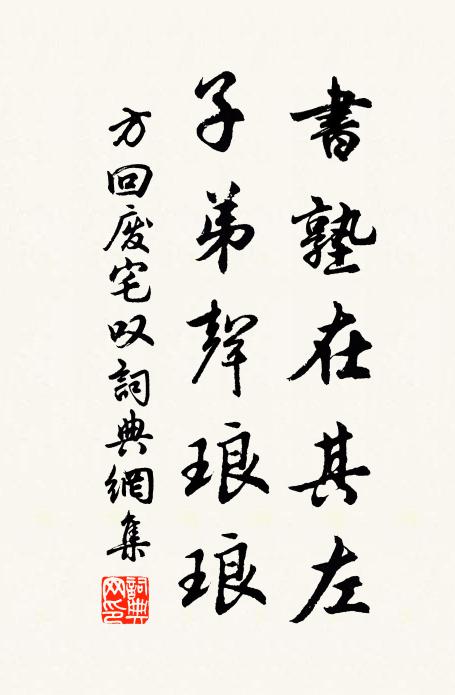 書塾在其左
子弟聲琅琅
方回廢宅叹詞典網集
詞典網印